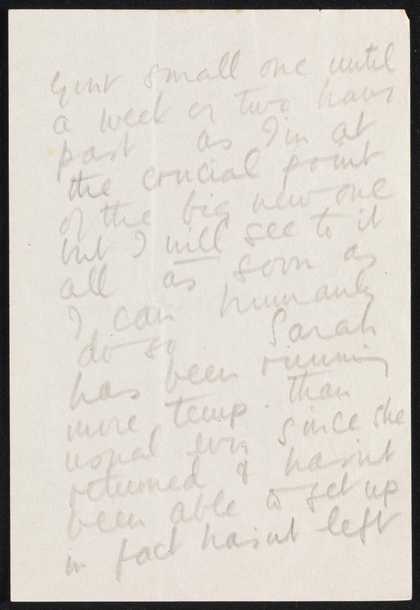 small one until
a week or two have
past as I'm at
the crucial point
of the big new one
but I will see to it
all as soon as
I can humanly
do so Sarah
has been running
more temp. than
usual ever since she
returned & hasnt
been able to get up
in fact hasnt left